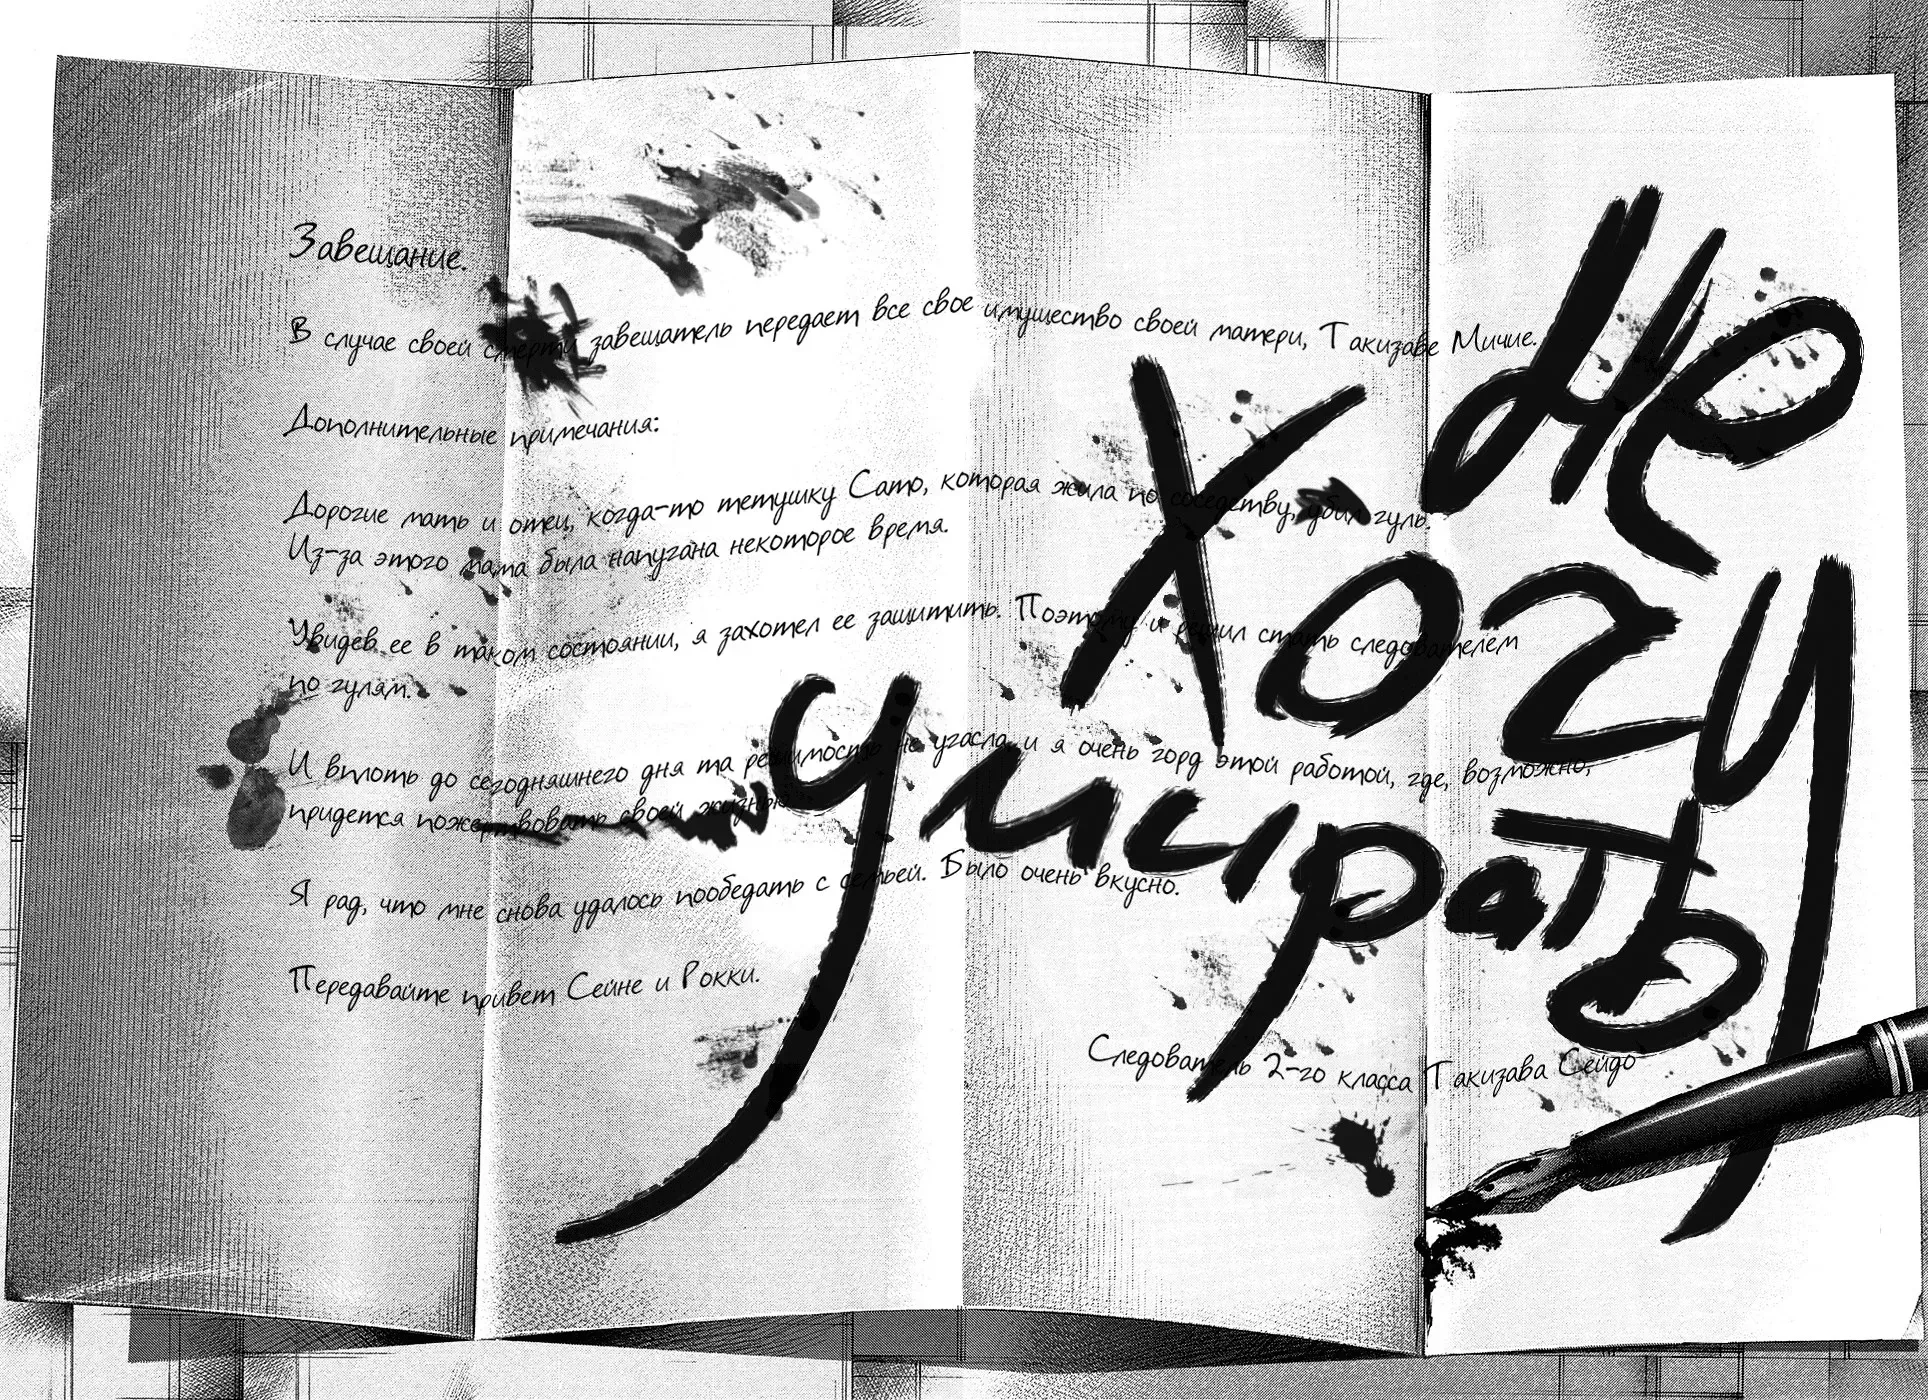 Завещание.
В случае своей смерти завещатель передает все свое имущество своей матери, Такизаве Мичие.
Дополнительные примечания:
Дорогие мать и отец, когда-то тетушку Сато, которая жила по соседству, убил гуль.
Из-за этого мама была напугана некоторое время.
Увидев ее в таком состоянии, я захотел ее защитить. Поэтому и решил стать следователем
по гулям.
И вплоть до сегодняшнего дня та решимость не угасла, и я очень горд этой работой, где, возможно,
придется пожертвовать своей жизнью
Я рад, что мне снова удалось пообедать с семьей. Было очень вкусно.
Передавайте привет Сейне и Рокки.
Следователь 2-го класса Такизава Сейдо
Не
Хочу
умирать